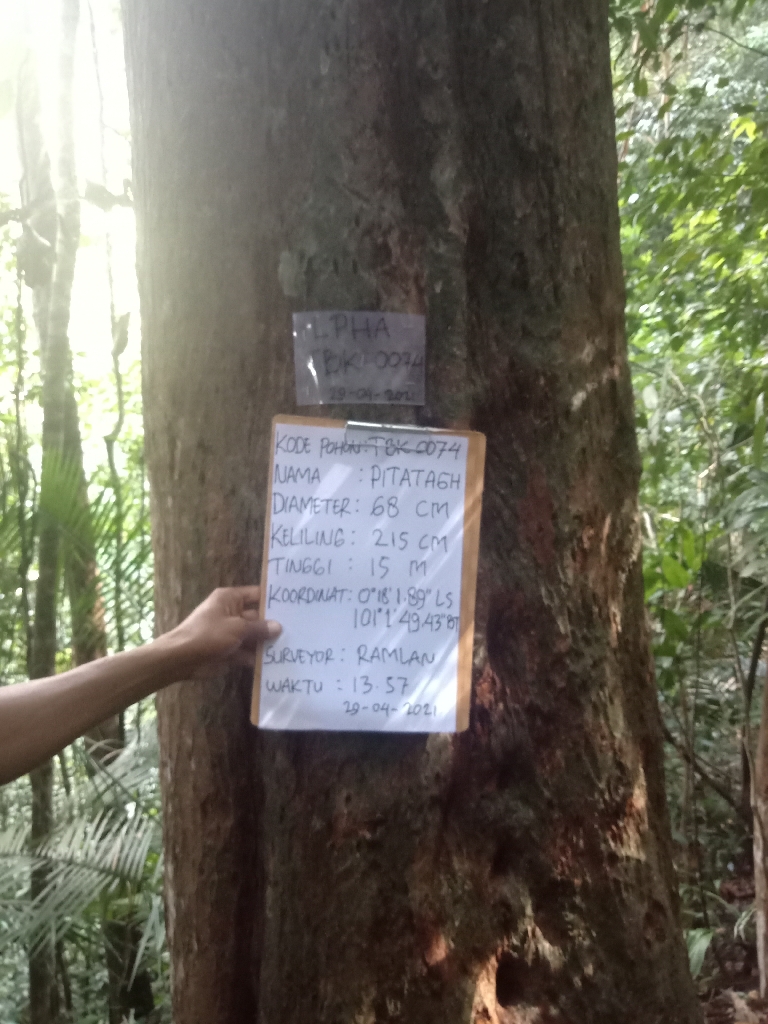 LPHA
TBK-0074
29-04-2021
KODE POHON: TBK 0074
NAMA : PITATAGH
DIAMETER: 68 CM
KELILING: 215 CM
TINGGI : 15 M
KOORDINAT: 0°18'1.89" LS
101°1'49.43" BT
SURVEYOR: RAMLAN
WAKTU : 13.57
29-04-2021